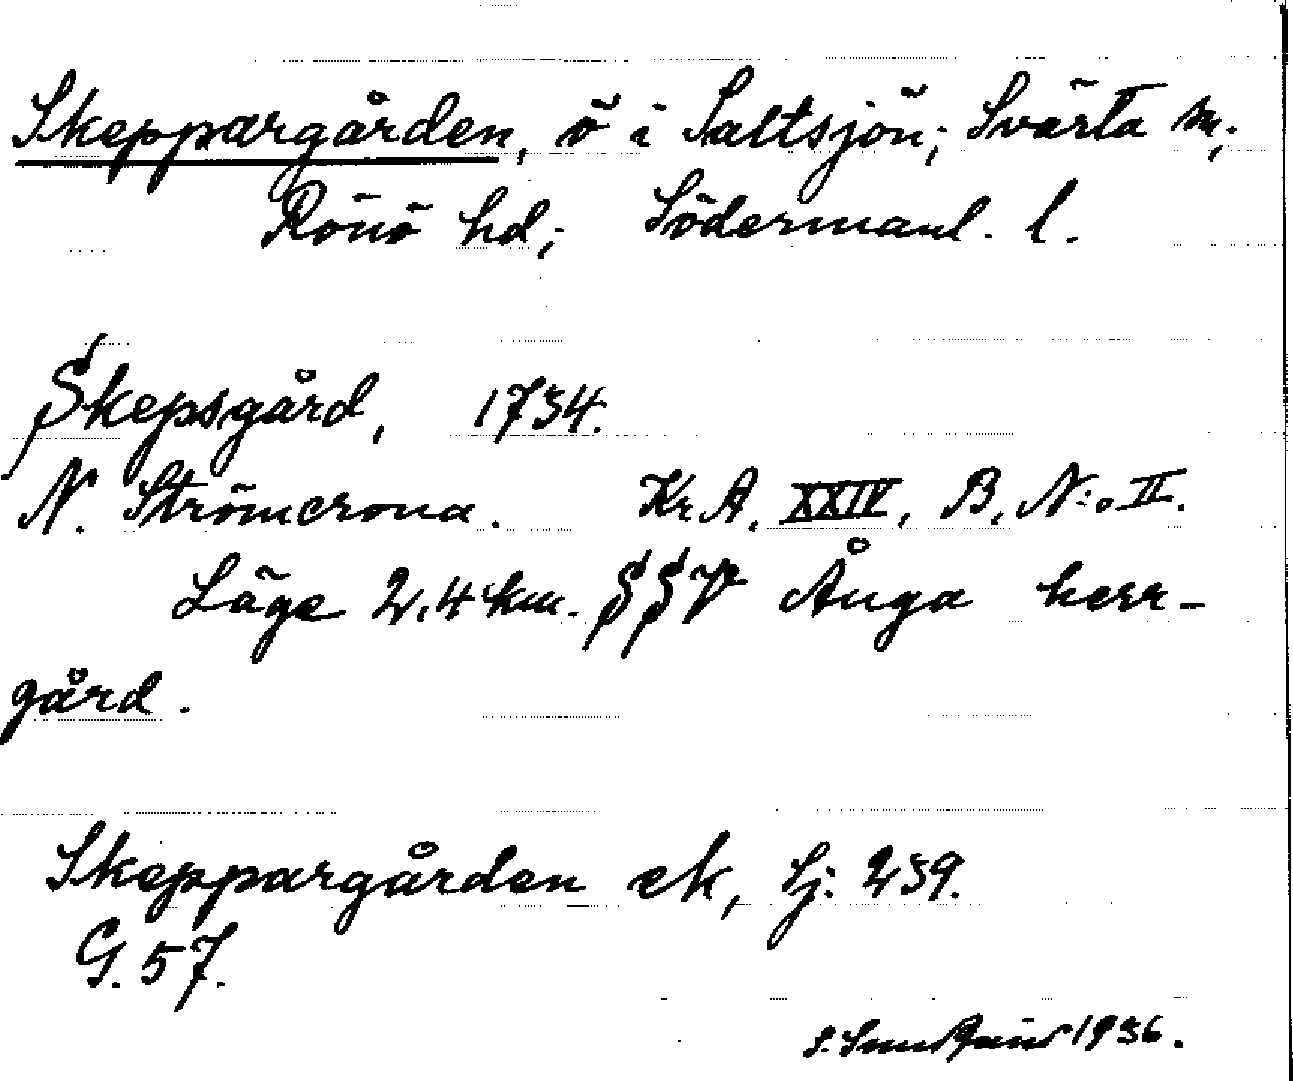 Skeppargården, ö i Saltsjön; Svärta sn;
Rönö hd; Södermanl. l.
Skepsgård, 1734.
N. Strömcrona. Kr. A. XXIV, B, N:o II.
Läge 2,4 km. SSV Ånga herr-
gård.
Skeppargården ek, Sj: 239.
G. 57.
S. 1936.